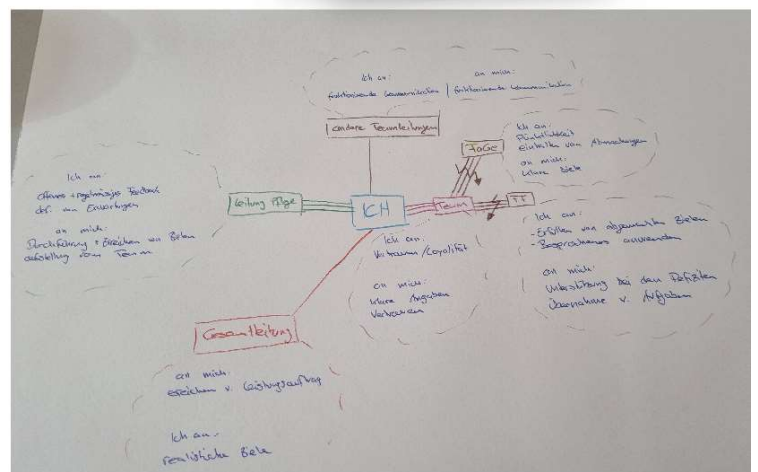 Ich an:
funktionierende Kommunikation
an mich:
funktionierende Kommunikation
andere Teamleitungen
FaGe
Ich an:
Pünktlichkeit
einhalten von Abmachungen
an mich:
klare Ziele
Ich an:
offenes + regelmässiges Feedback
def. von Erwartungen
an mich:
Durchführung + Erreichen von Zielen
aufstellung vom Team
Leitung Pflege
ICH
Team
Ich an:
Vertrauen/Loyalität
an mich:
klare Angaben
Vertrauen
Ich an:
- Erfüllen von abgemachten Zielen
- Besprochenes anwenden
an mich:
Unterstützung bei den Defiziten
Übernahme v. Aufgaben
Gesamtleitung
an mich:
erreichen v. Leistungsauftrag
Ich an:
realistische Ziele